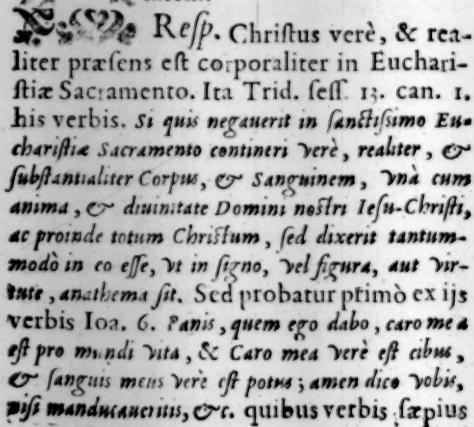 Resp. Christus verè, & rea-
liter præsens est corporaliter in Euchari-
stiæ Sacramento. Ita Trid. sess. 13. can. 1.
his verbis. Si quis negauerit in sanctissimo Eu-
charistiæ Sacramento contineri verè, realiter, &
substantialiter Corpus, & Sanguinem, vnà cum
anima, & diuinitate Domini nostri Iesu-Christi,
ac proinde totum Christum, sed dixerit tantum-
modò in eo esse, vt in signo, vel figura, aut vir-
tute, anathema sit. Sed probatur primò ex ijs
verbis Ioa. 6. Panis, quem ego dabo, caro mea
est pro mundi vita, & Caro mea verè est cibus,
& sanguis meus verè est potus; amen dico vobis,
nisi manducaueritis, &c. quibus verbis sæpius